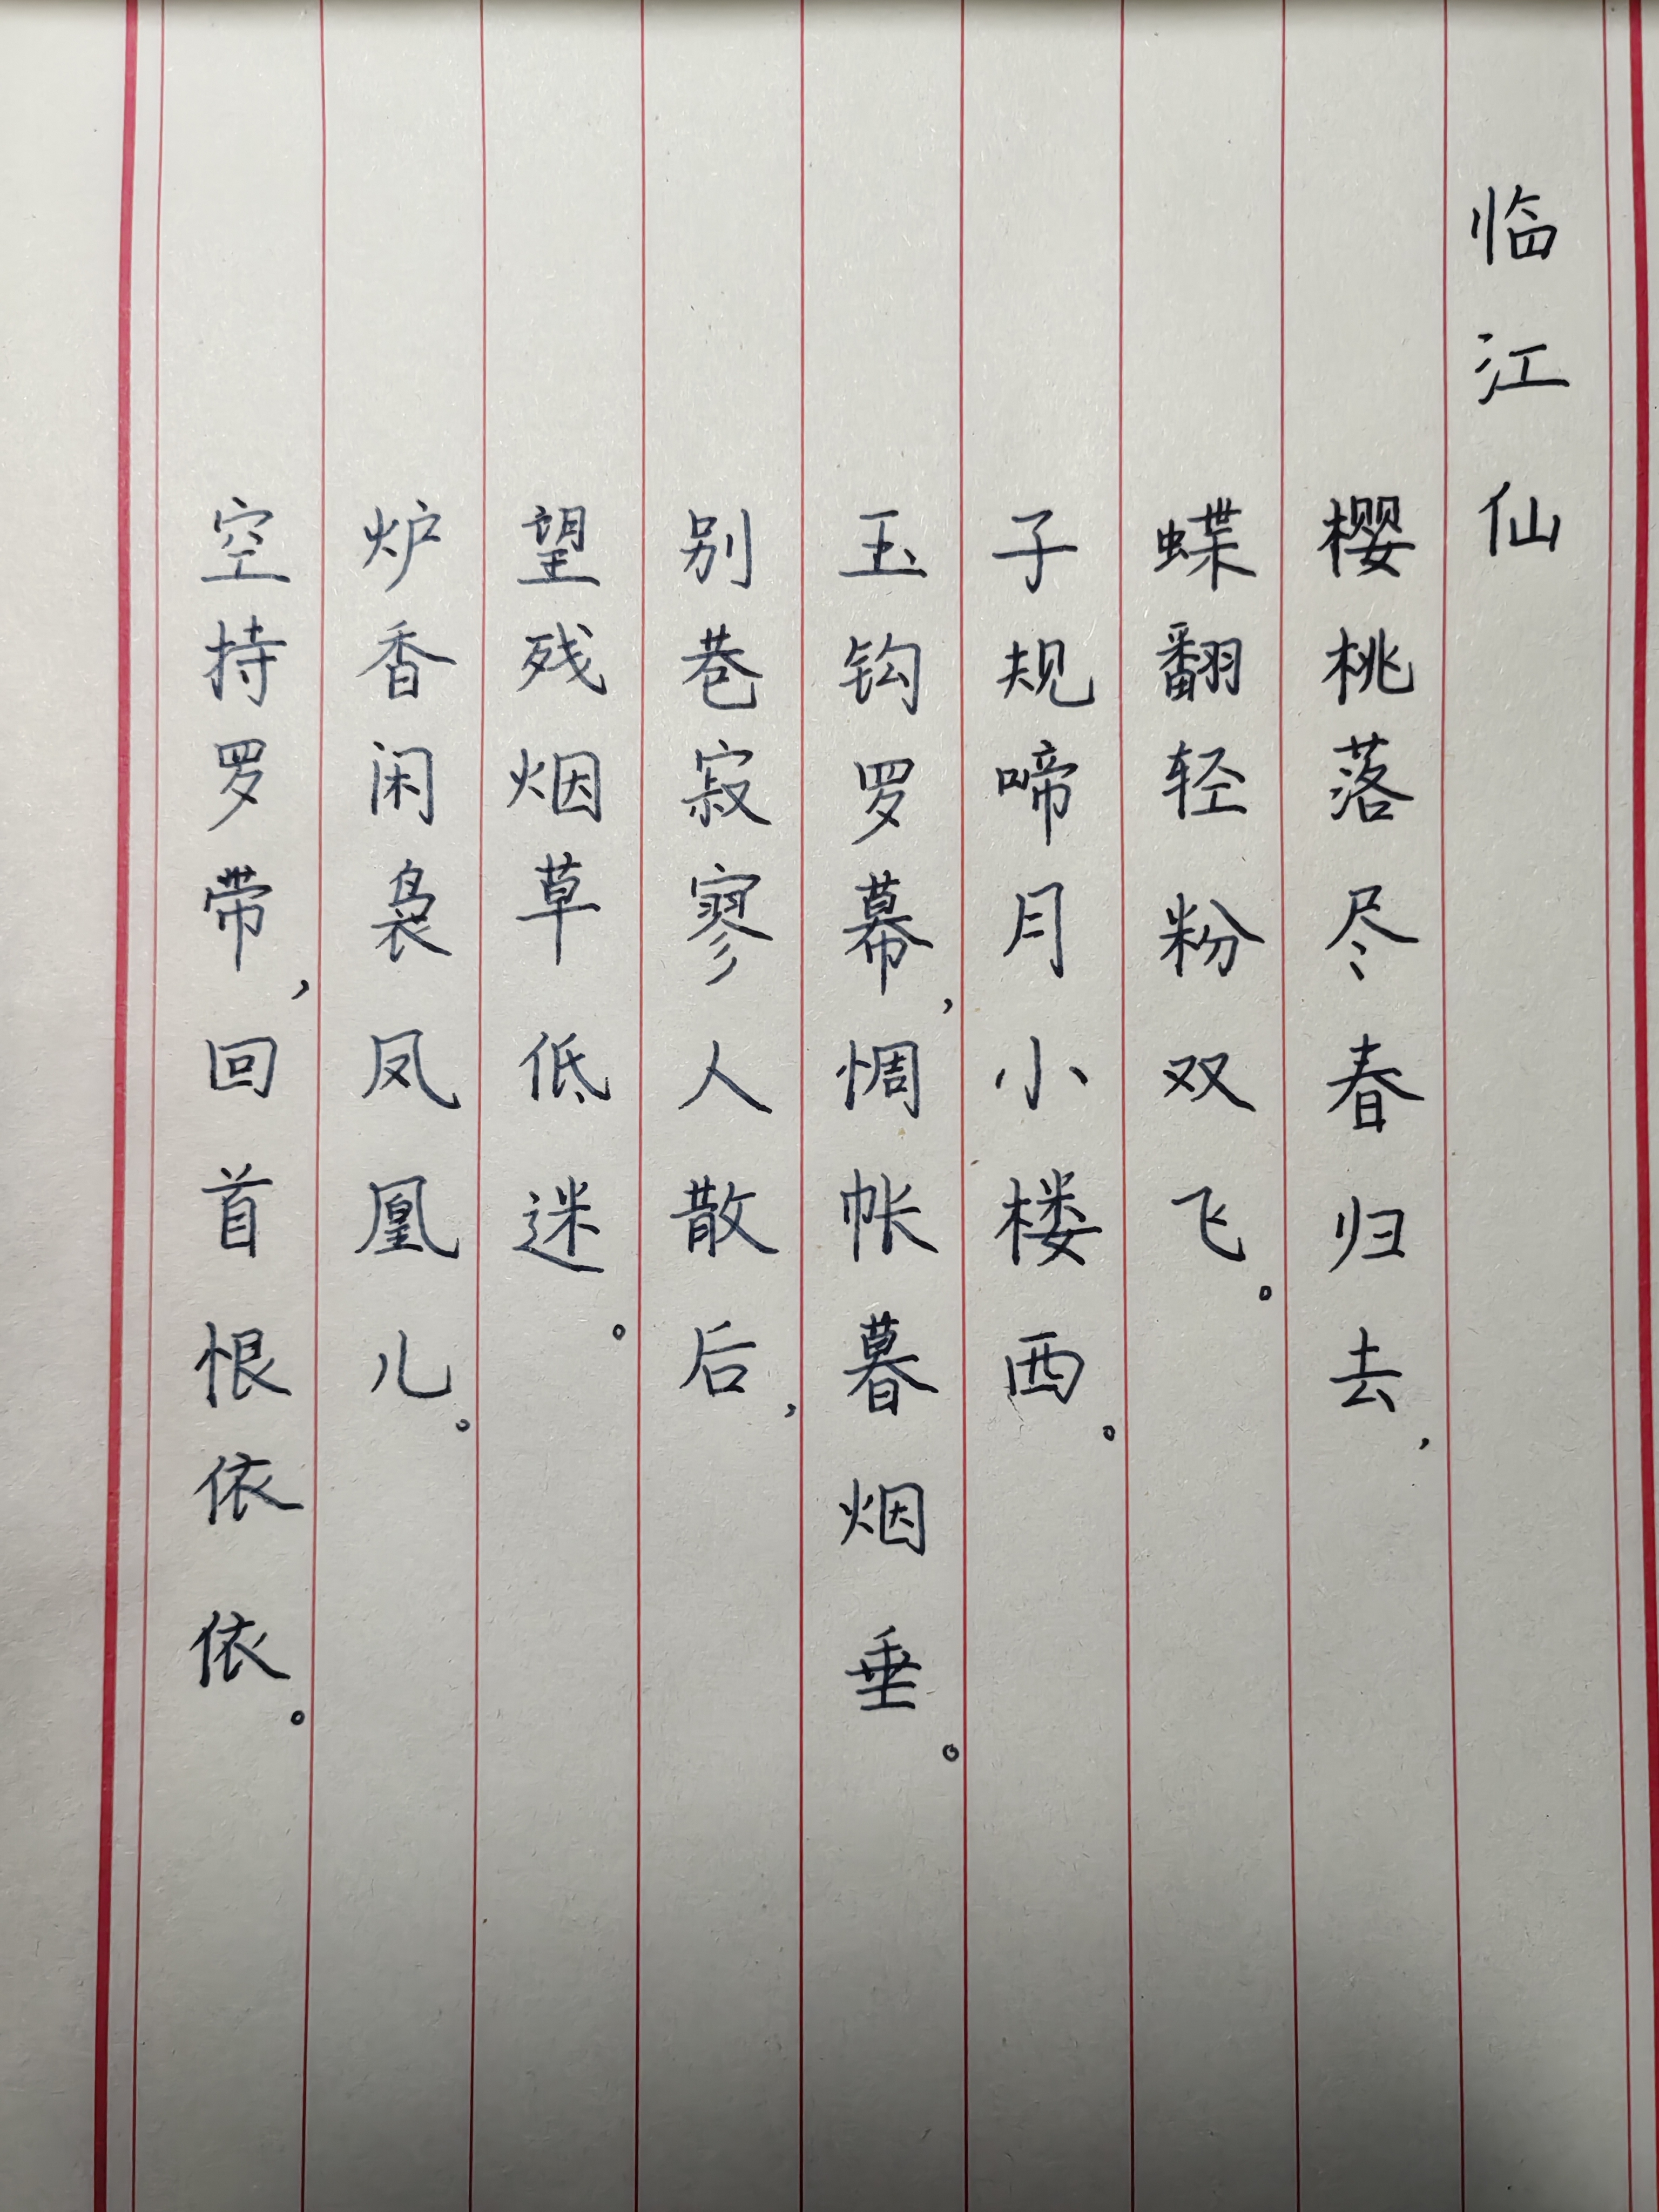 临江仙
樱桃落尽春归去，
蝶翻轻粉双飞。
子规啼月小楼西。
玉钩罗幕，惆帐暮烟垂。
别巷寂寥人散后，
望残烟草低迷。
炉香闲袅凤凰儿。
空持罗带，回首恨依依。